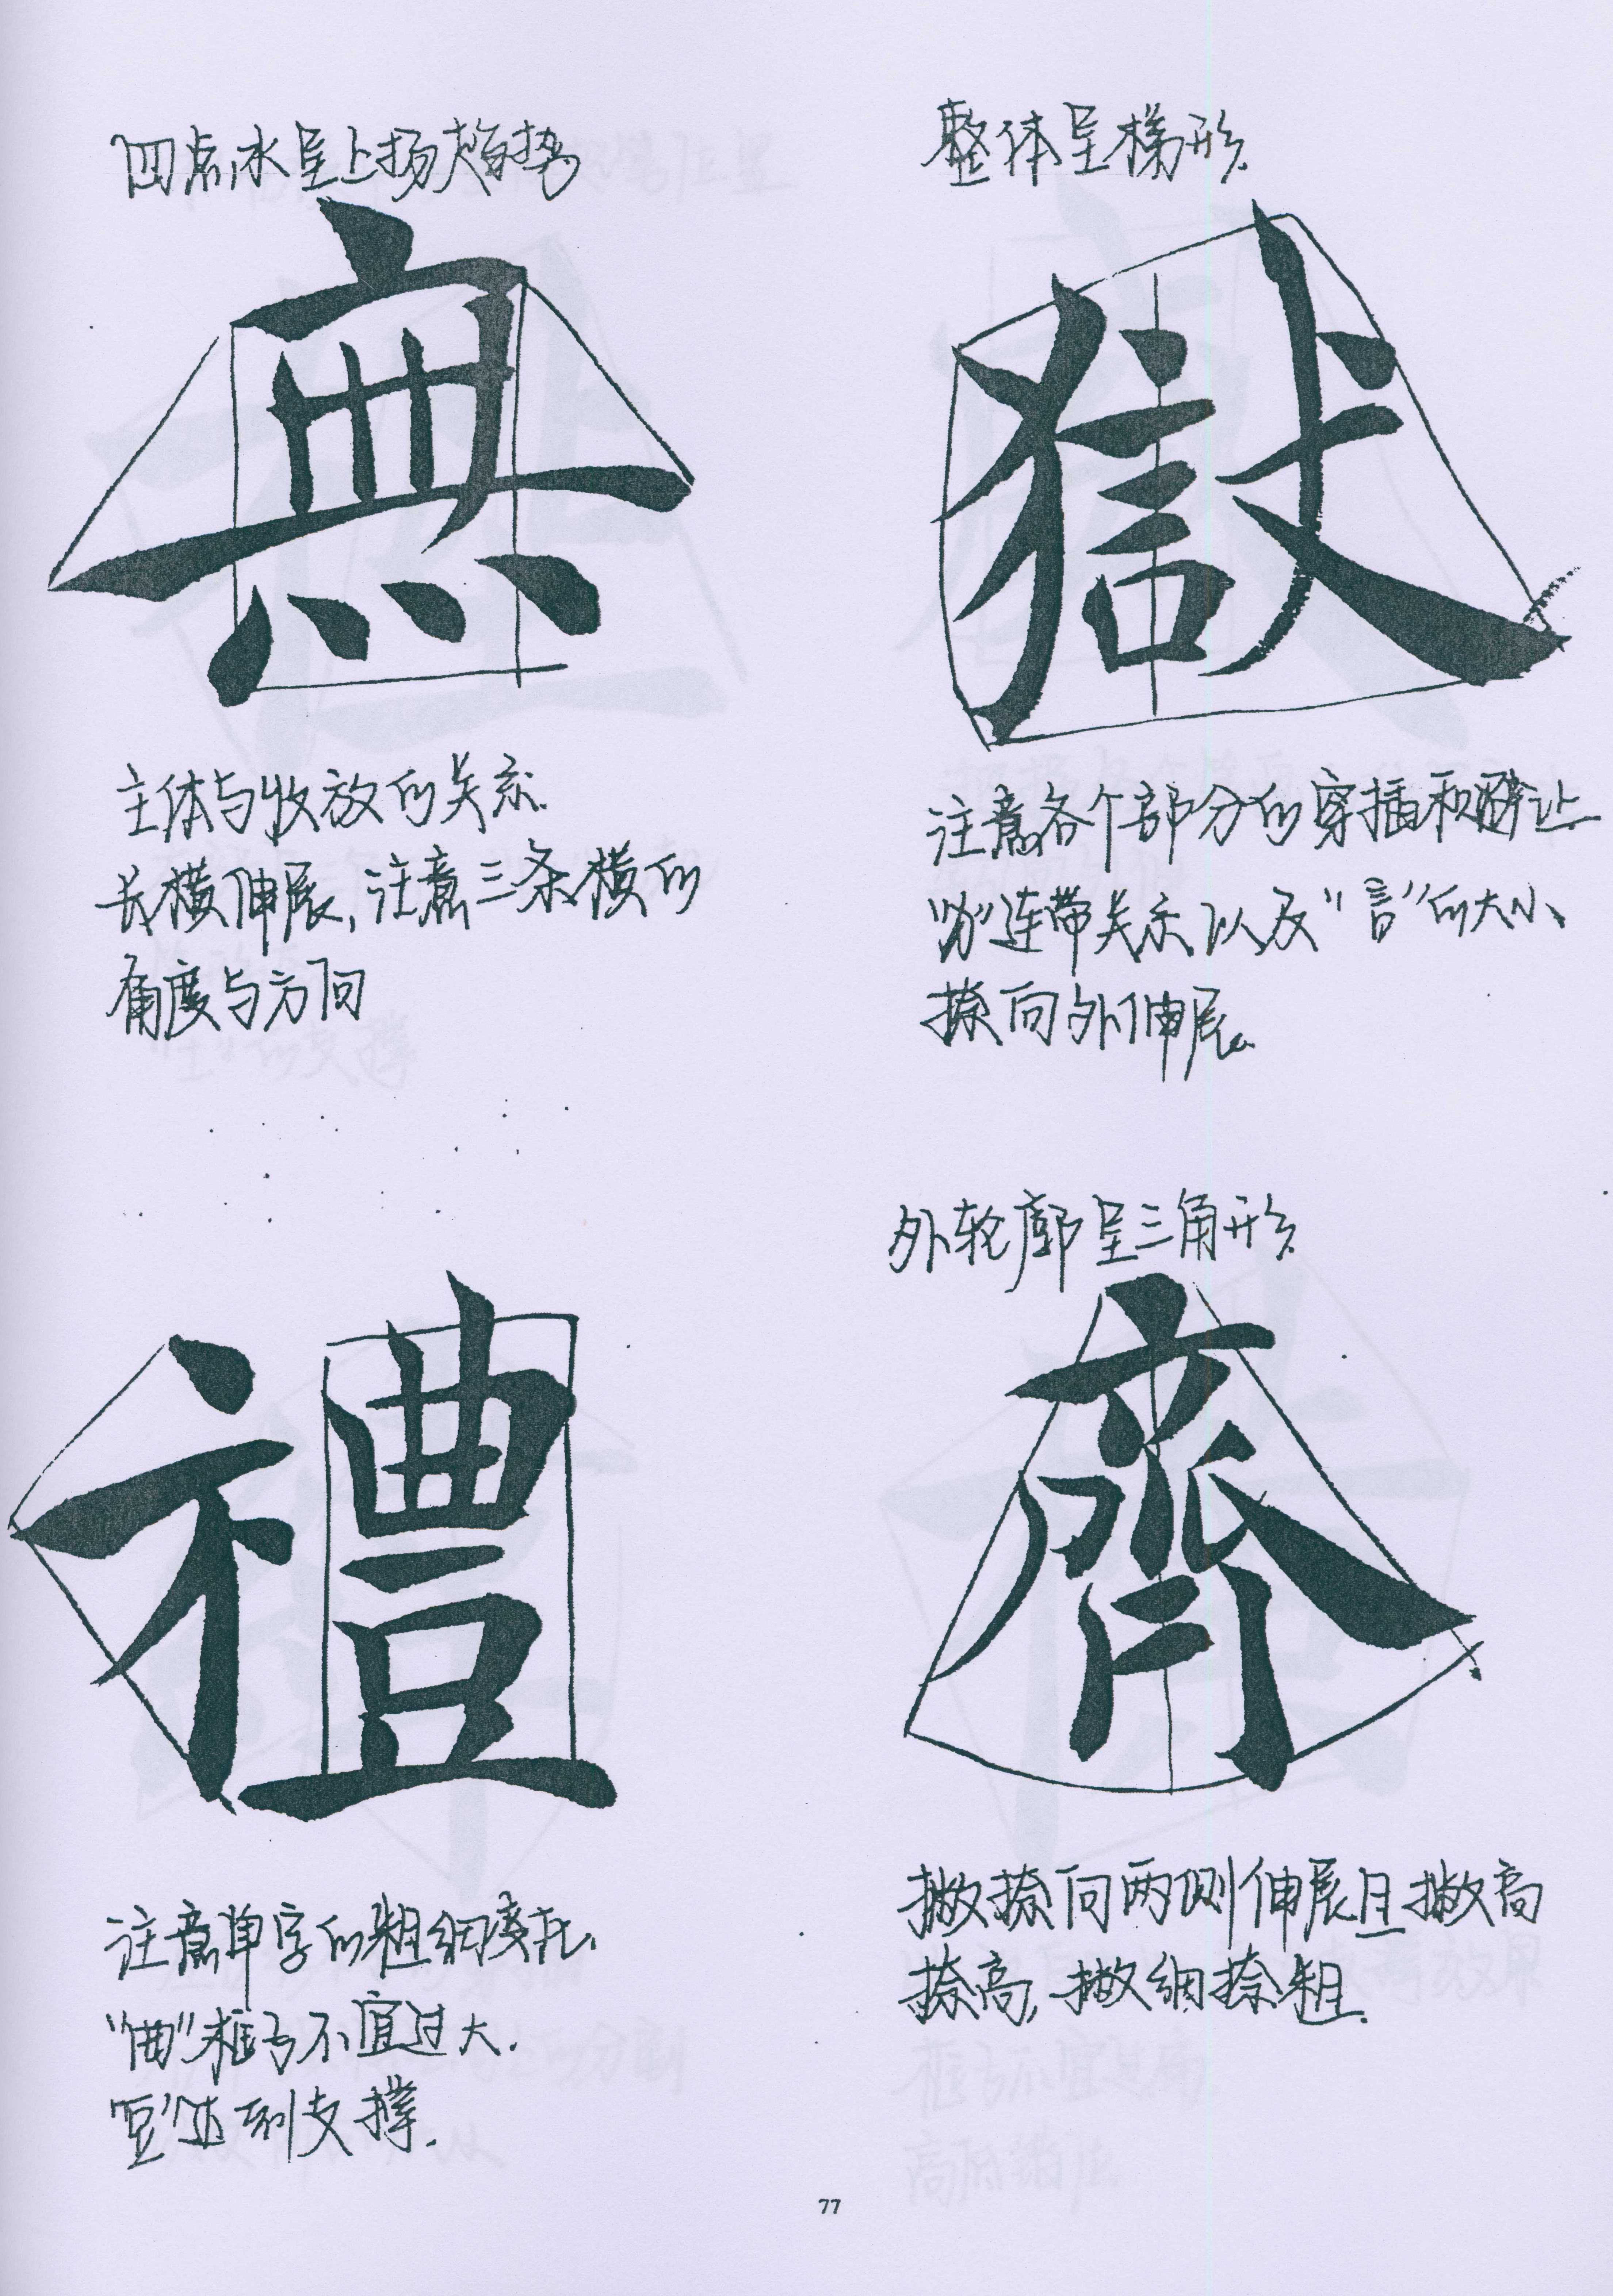 四点水呈上扬趋势
無
主体与收放的关系.
长横伸展,注意三条横的
角度与方向
整体呈梯形.
獄
注意各个部分的穿插和避让
连带关系以及"言"的大小
捺向外伸展.
禮
注意单字的粗细
"曲"框子不宜过大.
"豆"起到支撑.
外轮廓呈三角形.
齊
撇捺向两侧伸展且撇高
捺高,撇细捺粗.
77